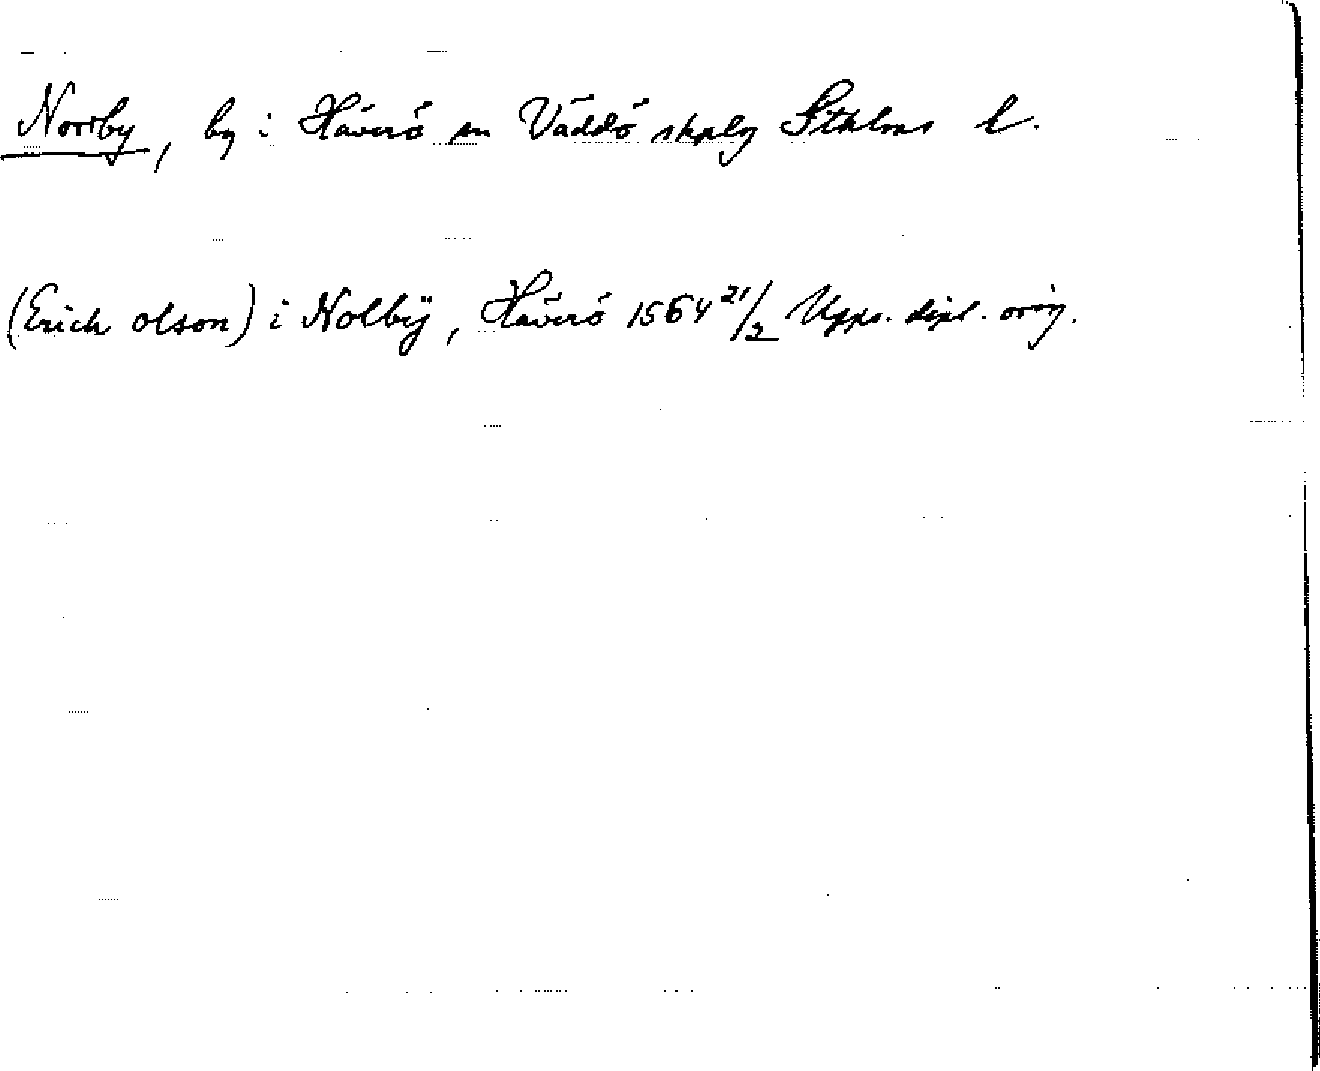 Norrby, by i Häverö sn Väddö skplg Sthlms l.
(Erich olson) i Nolbÿ, Häverö 1564 21/2 Upps. dipl. orig.